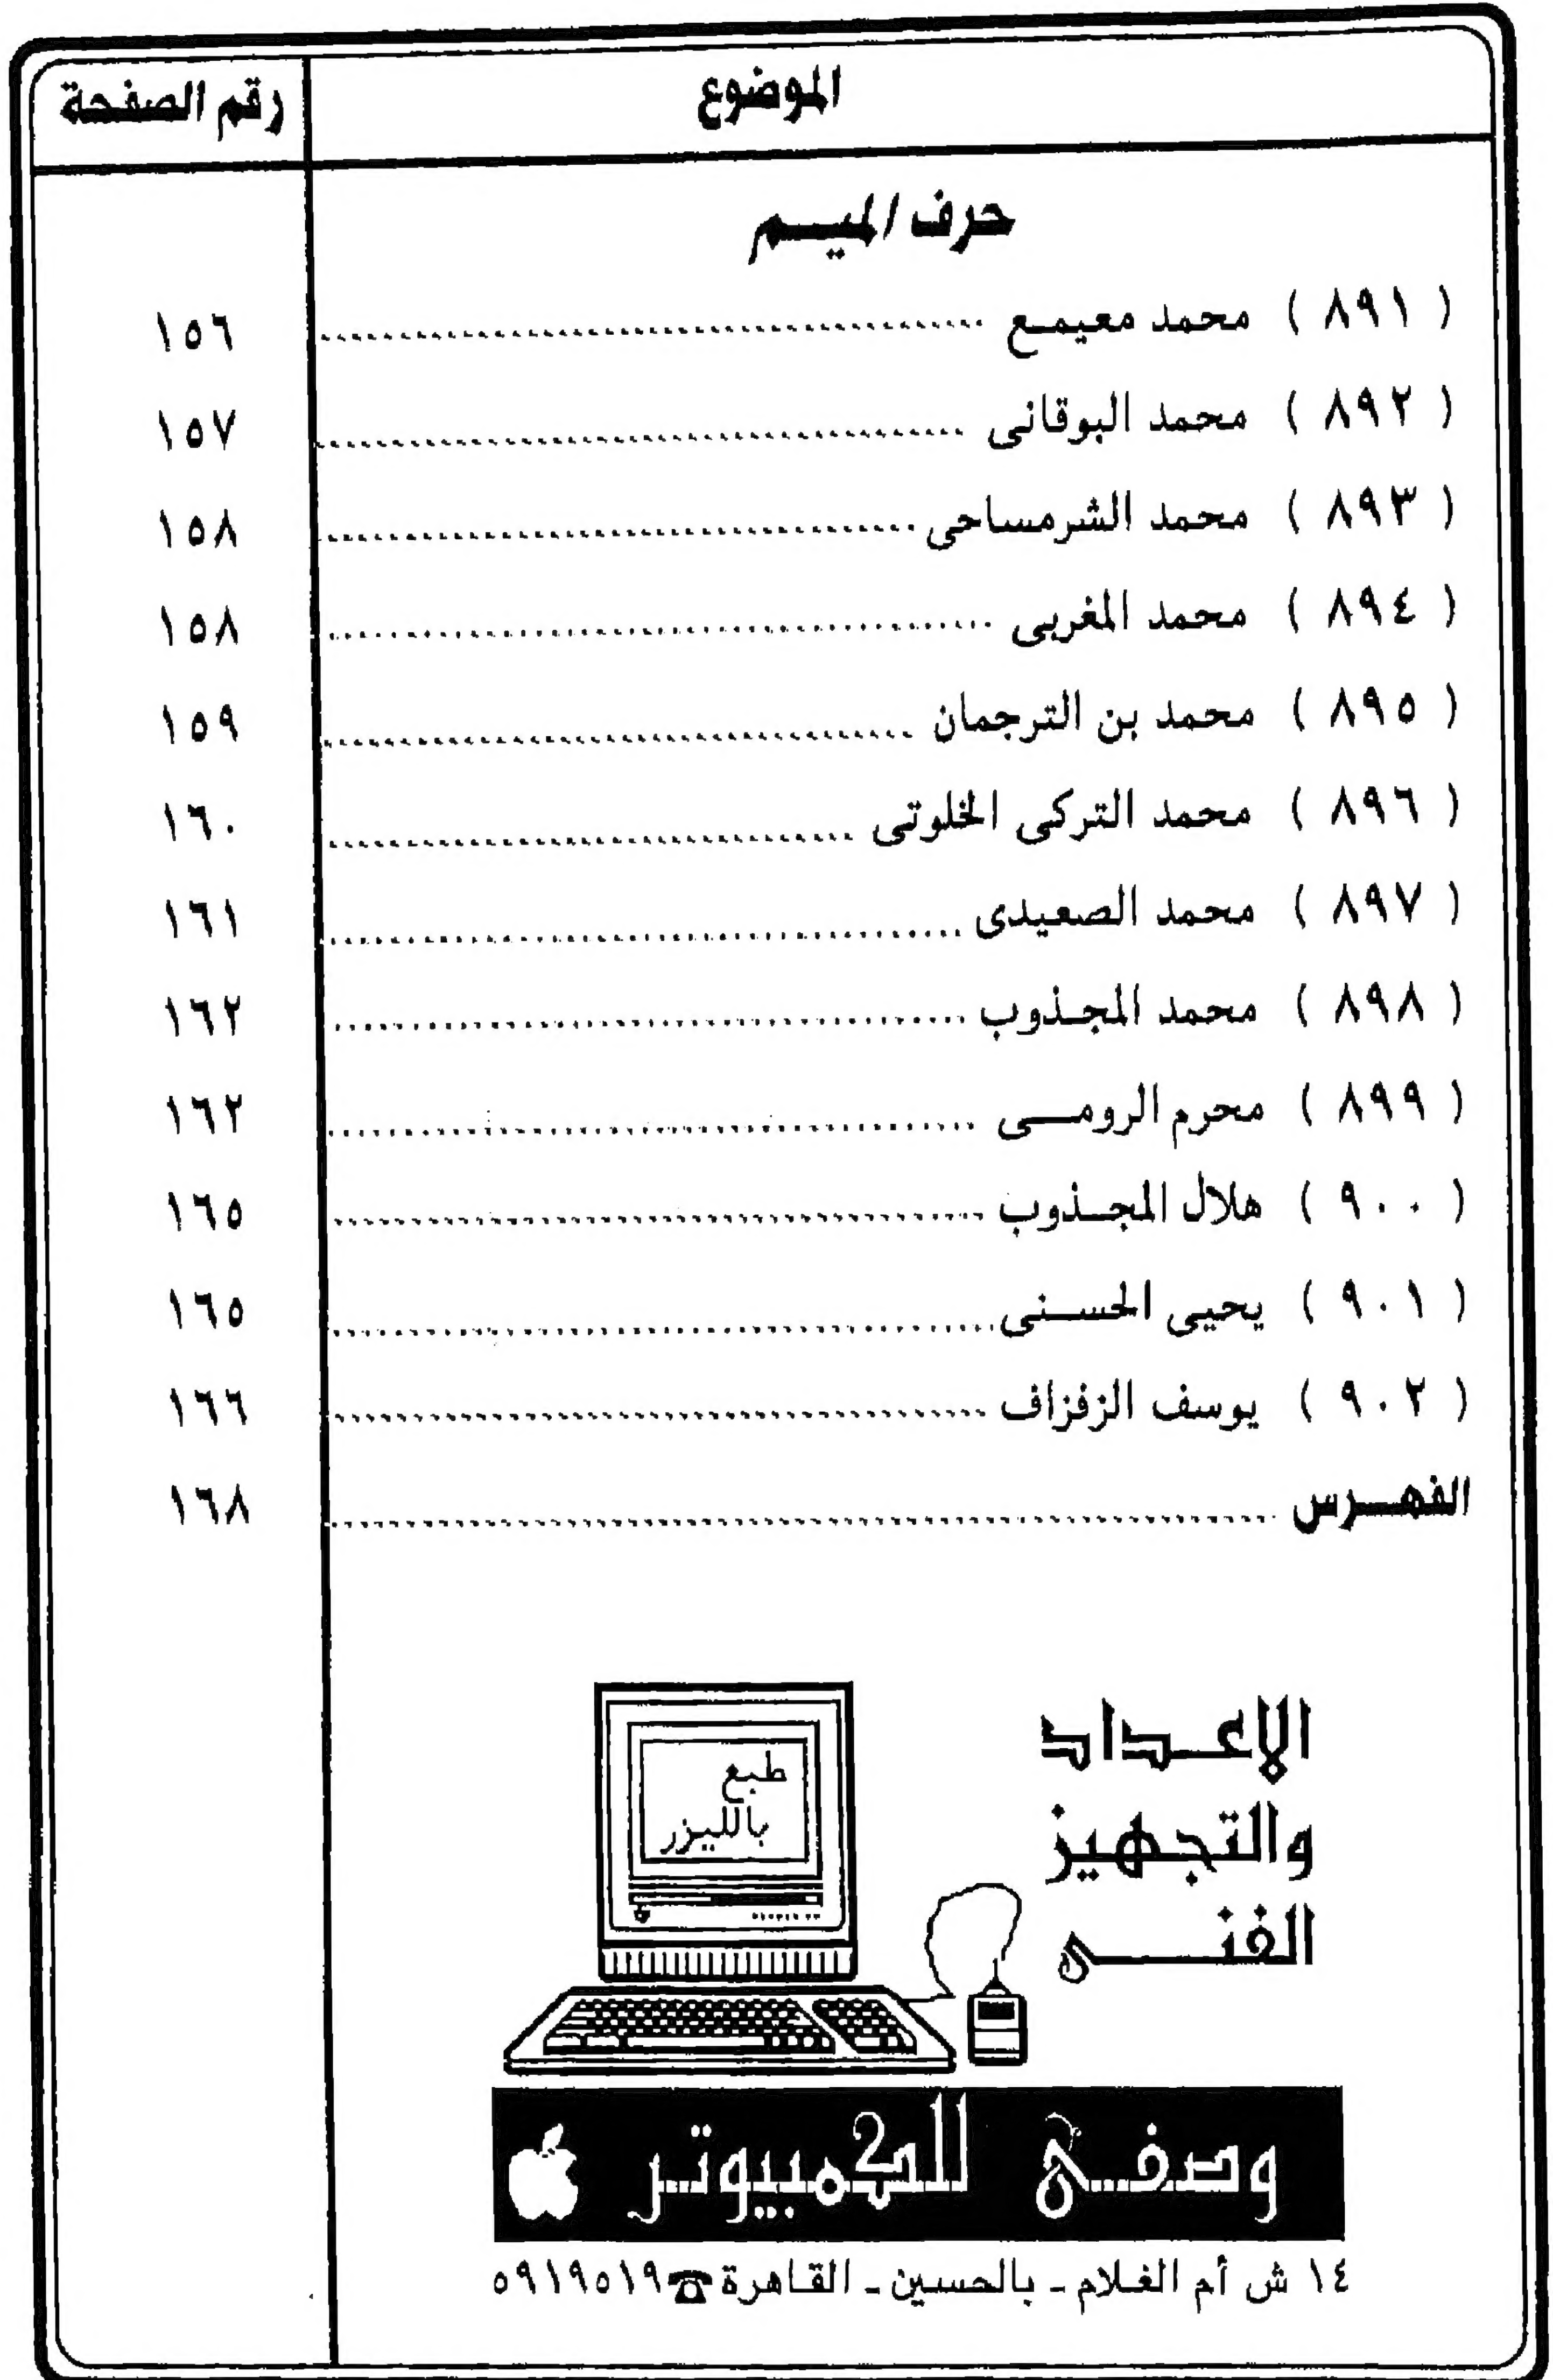 الموضوع رقم الصفحة
حرف الميـــم
( ٨٩١ ) محمد معيمـع ........................................ ١٥٦
( ٨٩٢ ) محمد البوقانى ........................................ ١٥٧
( ٨٩٣ ) محمد الشرمساحى ........................................ ١٥٨
( ٨٩٤ ) محمد المغربى ........................................ ١٥٨
( ٨٩٥ ) محمد بن الترجمان ........................................ ١٥٩
( ٨٩٦ ) محمد التركى الخلوتى ........................................ ١٦٠
( ٨٩٧ ) محمد الصعيدى ........................................ ١٦١
( ٨٩٨ ) محمد المجـذوب ........................................ ١٦٢
( ٨٩٩ ) محرم الرومـــى ........................................ ١٦٢
( ٩٠٠ ) هلال المجــذوب ........................................ ١٦٥
( ٩٠١ ) يحيى الحســنى ........................................ ١٦٥
( ٩٠٢ ) يوسف الزفزاف ........................................ ١٦٦
الفهـــرس ........................................ ١٦٨
الإعــداد
والتجهيز
الفنــــى
طبع
بالليزر
وصفــى للكمبيوتـر
١٤ ش أم الغـلام ـ بالحسين ـ القاهرة ☎ ٥٩١٩٥١٩